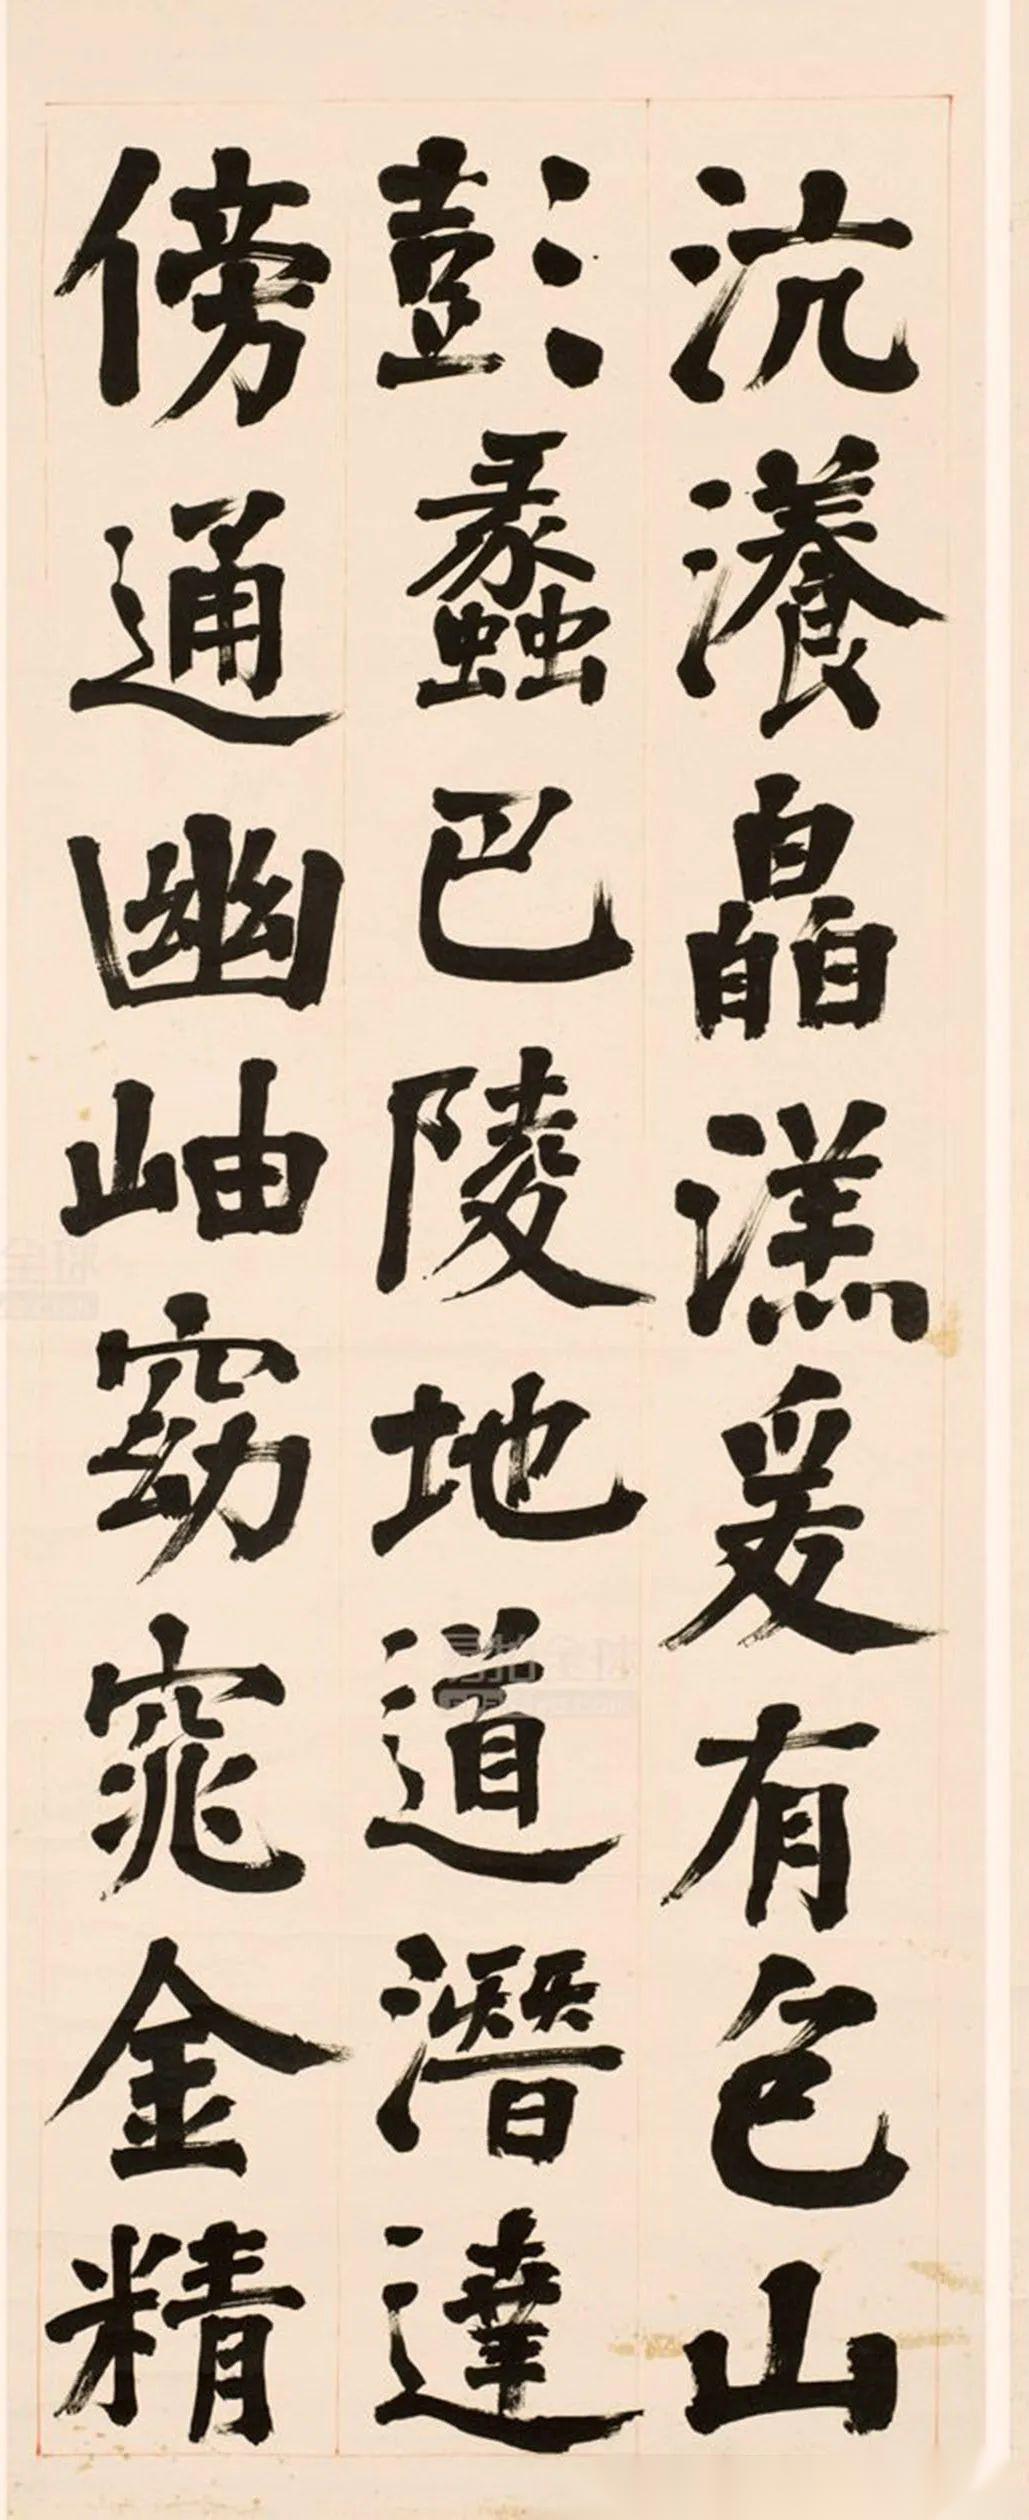 沆瀁皛溔爰有包山
彭蠡巴陵地道潛達
傍通幽岫窈窕金精